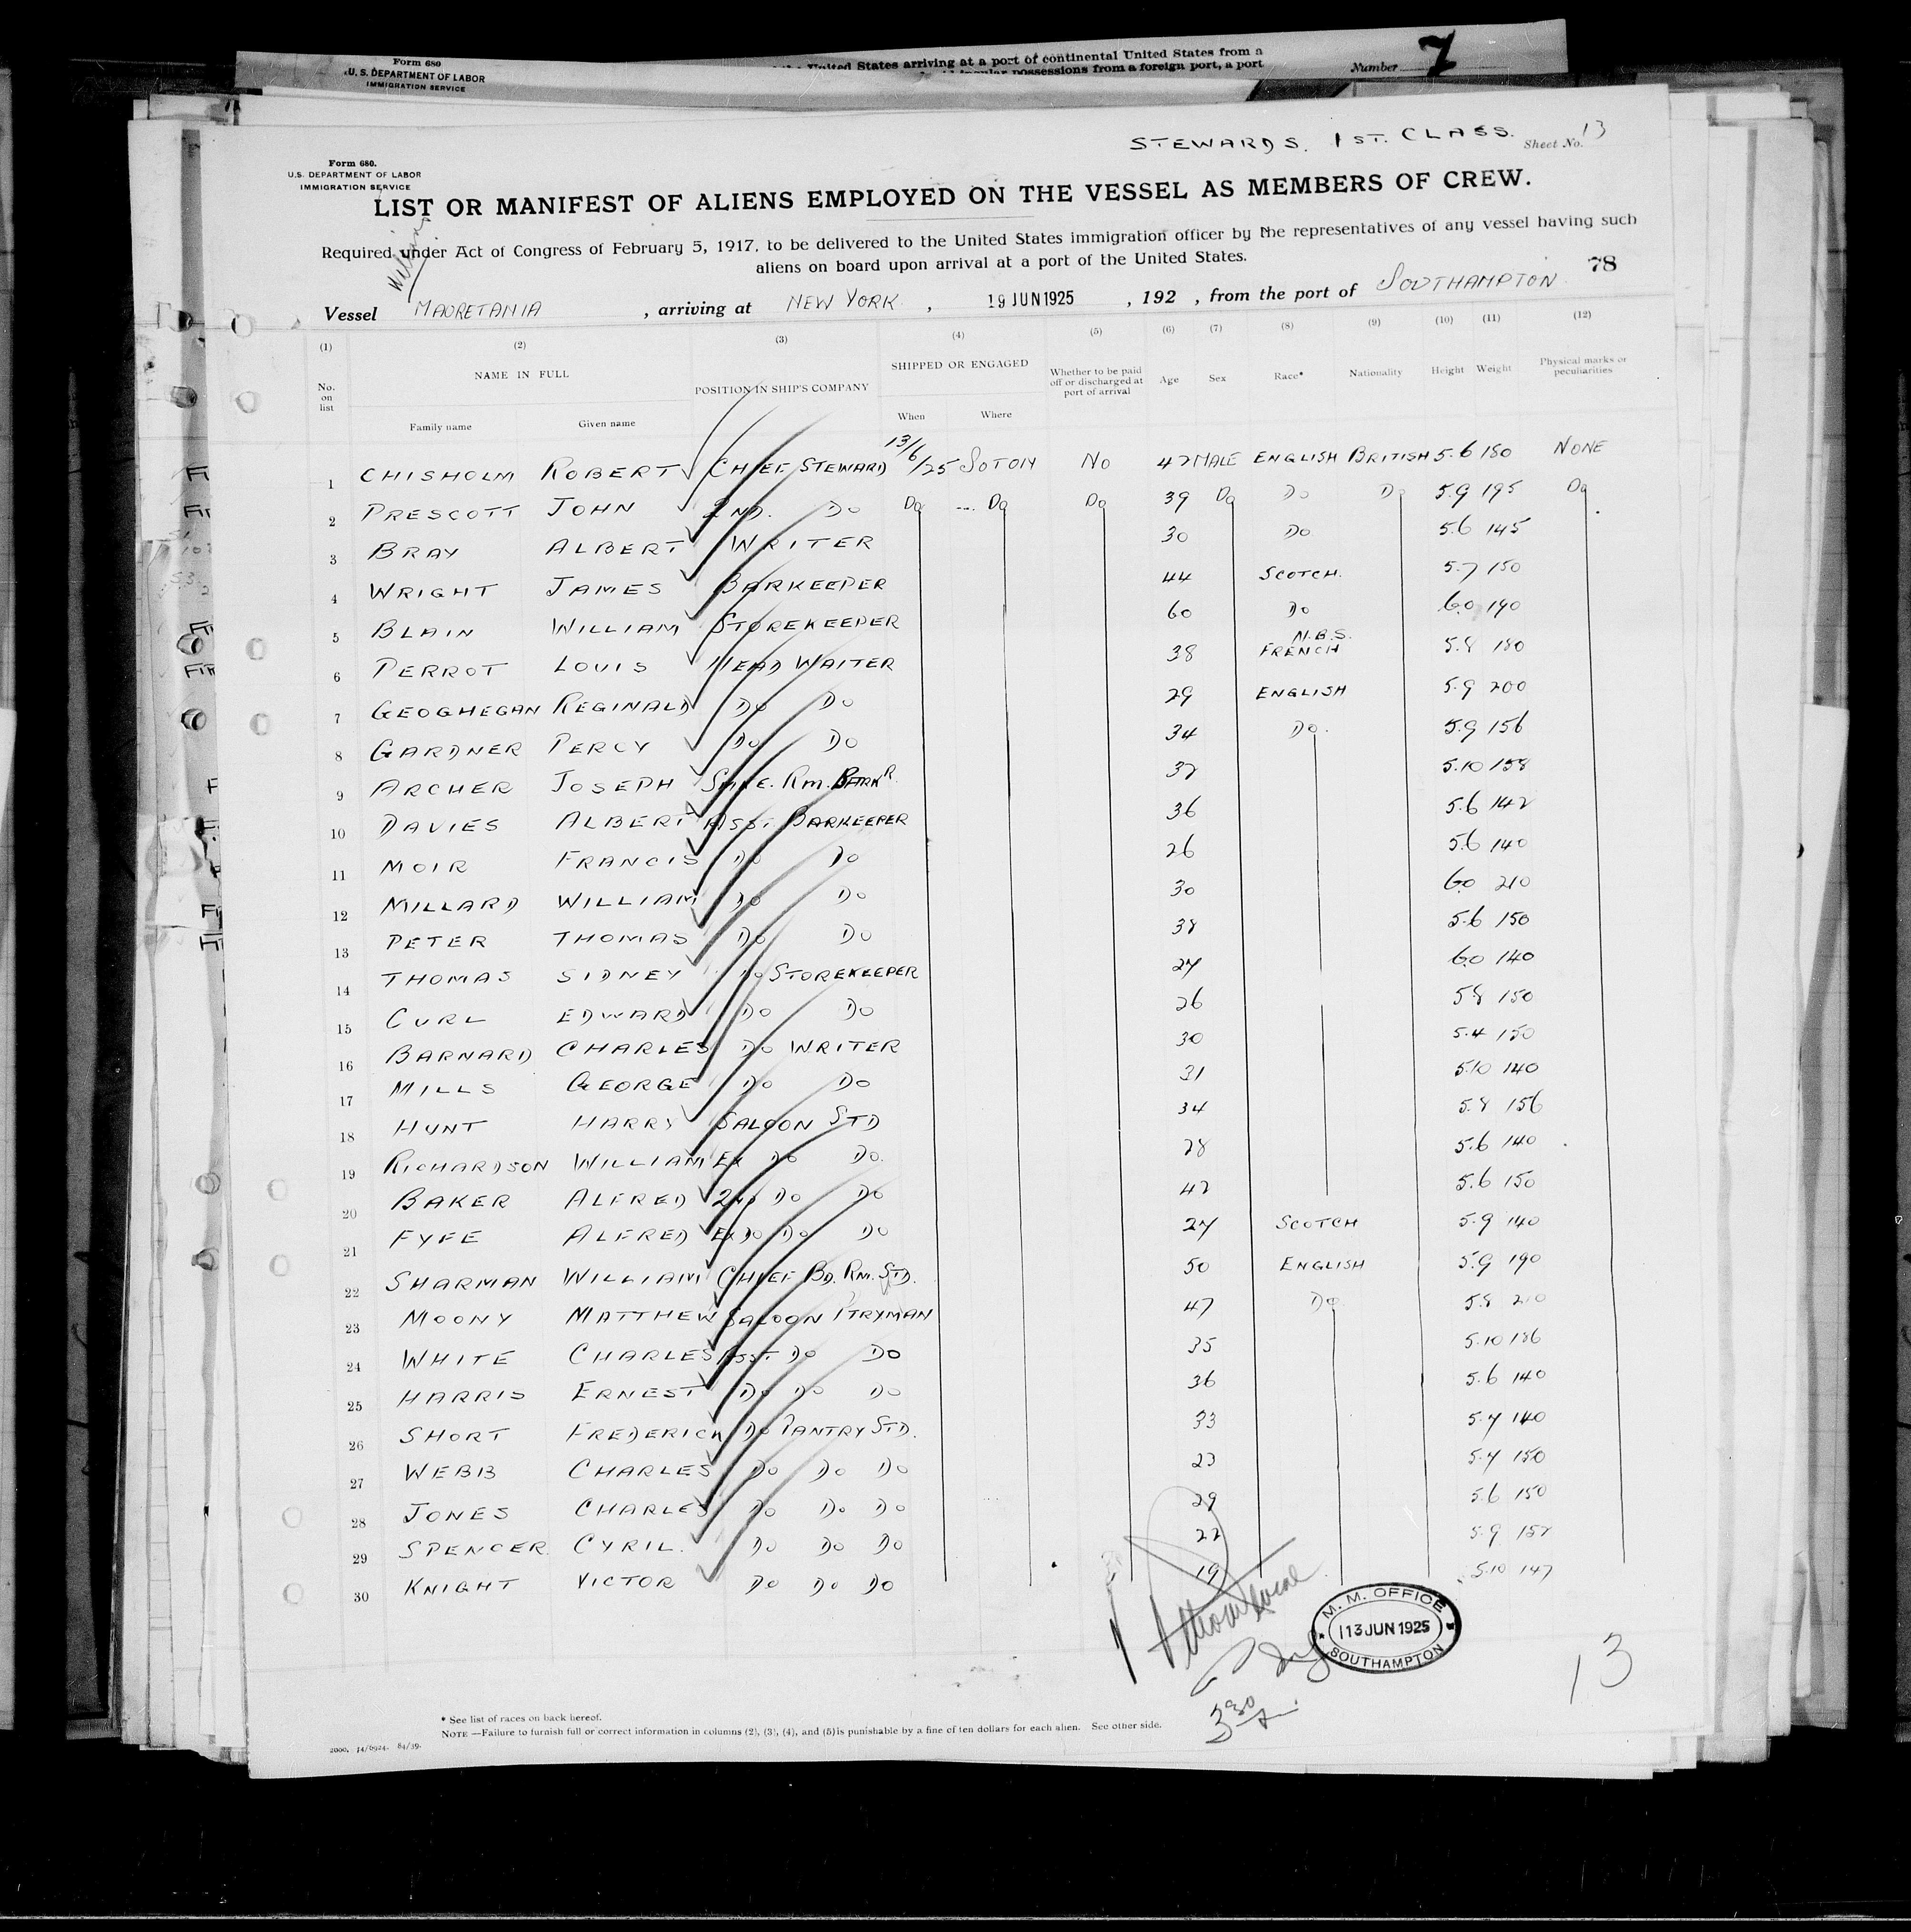 Form 680
U. S. DEPARTMENT OF LABOR
IMMIGRATION SERVICE
United States arriving at a port of continental United States from a
possessions from a foreign port, a port
Number 7
STEWARDS. 1ST. CLASS. Sheet No. 13
Form 680.
U.S. DEPARTMENT OF LABOR
IMMIGRATION SERVICE
LIST OR MANIFEST OF ALIENS EMPLOYED ON THE VESSEL AS MEMBERS OF CREW.
Required under Act of Congress of February 5, 1917, to be delivered to the United States immigration officer by the representatives of any vessel having such
aliens on board upon arrival at a port of the United States.
78
Vessel MAURETANIA , arriving at NEW YORK , 19 JUN 1925 , 192 , from the port of SOUTHAMPTON
(1) (2) (3) (4) (5) (6) (7) (8) (9) (10) (11) (12)
No. on list NAME IN FULL POSITION IN SHIP'S COMPANY SHIPPED OR ENGAGED Whether to be paid off or discharged at port of arrival Age Sex Race* Nationality Height Weight Physical marks or peculiarities
Family name Given name When Where
1 CHISHOLM ROBERT CHIEF STEWARD 13/6/25 SOTON NO 42 MALE ENGLISH BRITISH 5.6 180 NONE
2 PRESCOTT JOHN 2ND. DO DO DO DO 39 DO DO DO 5.9 195 DO
3 BRAY ALBERT WRITER 30 DO 5.6 145
4 WRIGHT JAMES BARKEEPER 44 SCOTCH. 5.7 150
5 BLAIN WILLIAM STOREKEEPER 60 DO 6.0 190
6 PERROT LOUIS HEAD WAITER 38 N.B.S. FRENCH 5.8 180
7 GEOGHEGAN REGINALD DO DO 29 ENGLISH 5.9 200
8 GARDNER PERCY DO DO 34 DO. 5.9 156
9 ARCHER JOSEPH SMKE. RM. BARKR 32 5.10 158
10 DAVIES ALBERT ASST BARKEEPER 36 5.6 142
11 MOIR FRANCIS DO DO 26 5.6 140
12 MILLARD WILLIAM DO DO 30 6.0 210
13 PETER THOMAS DO DO 38 5.6 150
14 THOMAS SIDNEY DO STOREKEEPER 27 6.0 140
15 CURL EDWARD DO DO 26 5.8 150
16 BARNARD CHARLES DO WRITER 30 5.4 150
17 MILLS GEORGE DO DO 31 5.10 140
18 HUNT HARRY SALOON STD 34 5.8 156
19 RICHARDSON WILLIAM EX DO DO. 28 5.6 140
20 BAKER ALFRED 2ND DO DO 42 5.6 150
21 FYFE ALFRED EX DO DO DO 27 SCOTCH 5.9 140
22 SHARMAN WILLIAM CHIEF BD. RM. STD. 50 ENGLISH 5.9 190
23 MOONY MATTHEW SALOON PTRYMAN 47 DO 5.8 210
24 WHITE CHARLES ASST DO DO 35 5.10 186
25 HARRIS ERNEST DO DO DO 36 5.6 140
26 SHORT FREDERICK DO PANTRY STD. 33 5.7 140
27 WEBB CHARLES DO DO DO 23 5.7 150
28 JONES CHARLES DO DO DO 29 5.6 150
29 SPENCER CYRIL. DO DO DO 22 5.9 152
30 KNIGHT VICTOR DO DO DO 19 5.10 147
M. M. OFFICE
13 JUN 1925
SOUTHAMPTON
13
* See list of races on back hereof.
NOTE —Failure to furnish full or correct information in columns (2), (3), (4), and (5) is punishable by a fine of ten dollars for each alien. See other side.
2000. 14/6924. 84/39.